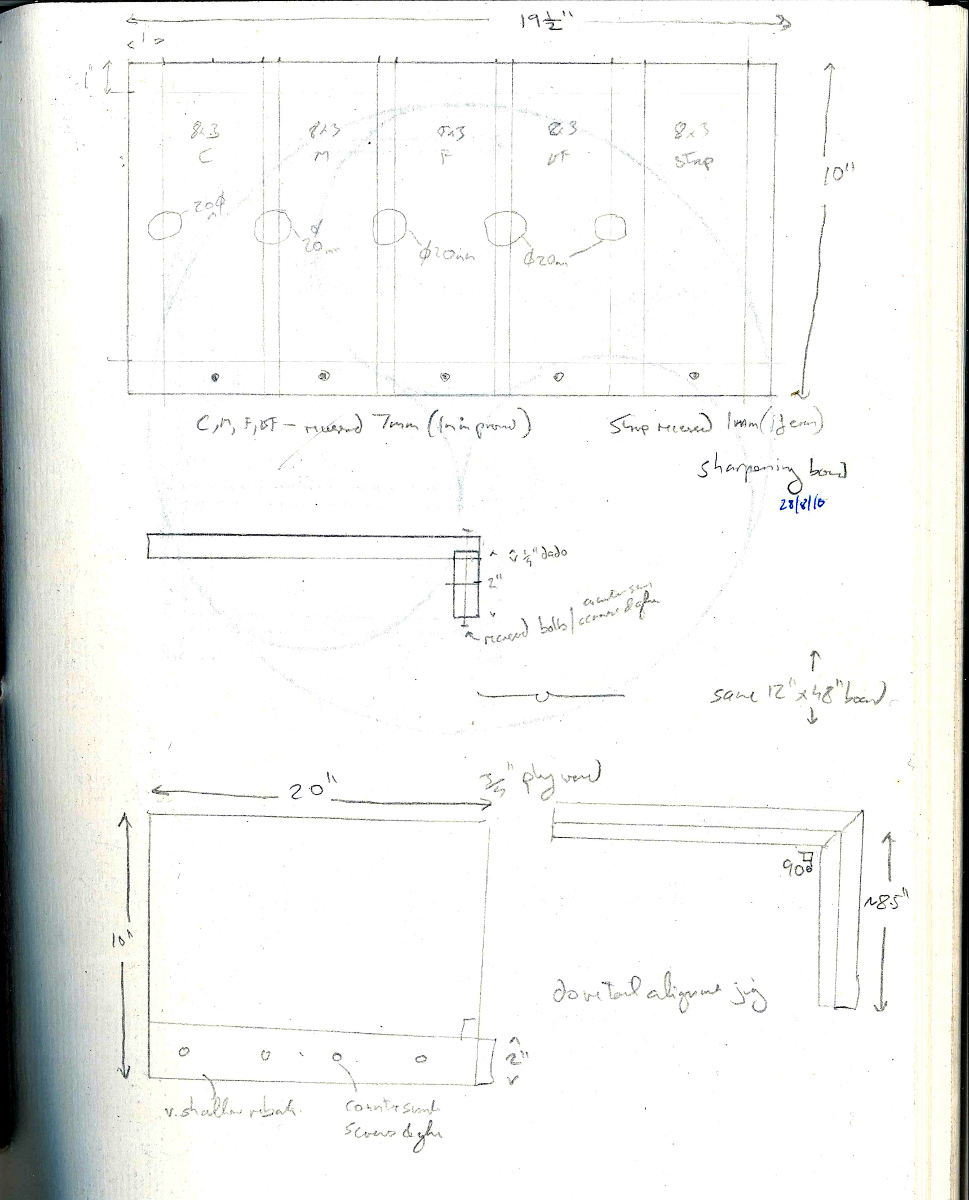 19½"
1
1"
8x3 8x3 8x3 8x3 8x3
C M F VF Strop
20ϕ
ϕ
20mm
ϕ20mm
ϕ20mm
10"
C, M, F, VF – recessed 7mm (1mm proud) Strop recessed 1mm
sharpening board
28/8/10
¼" dado
2"
recessed bolts/countersunk
screws & glue
same 12" x 48" board
¾" plywood
20"
90°
~8.5"
10"
dovetail alignment jig
2"
v. shallow rebate
countersunk
screws & glue